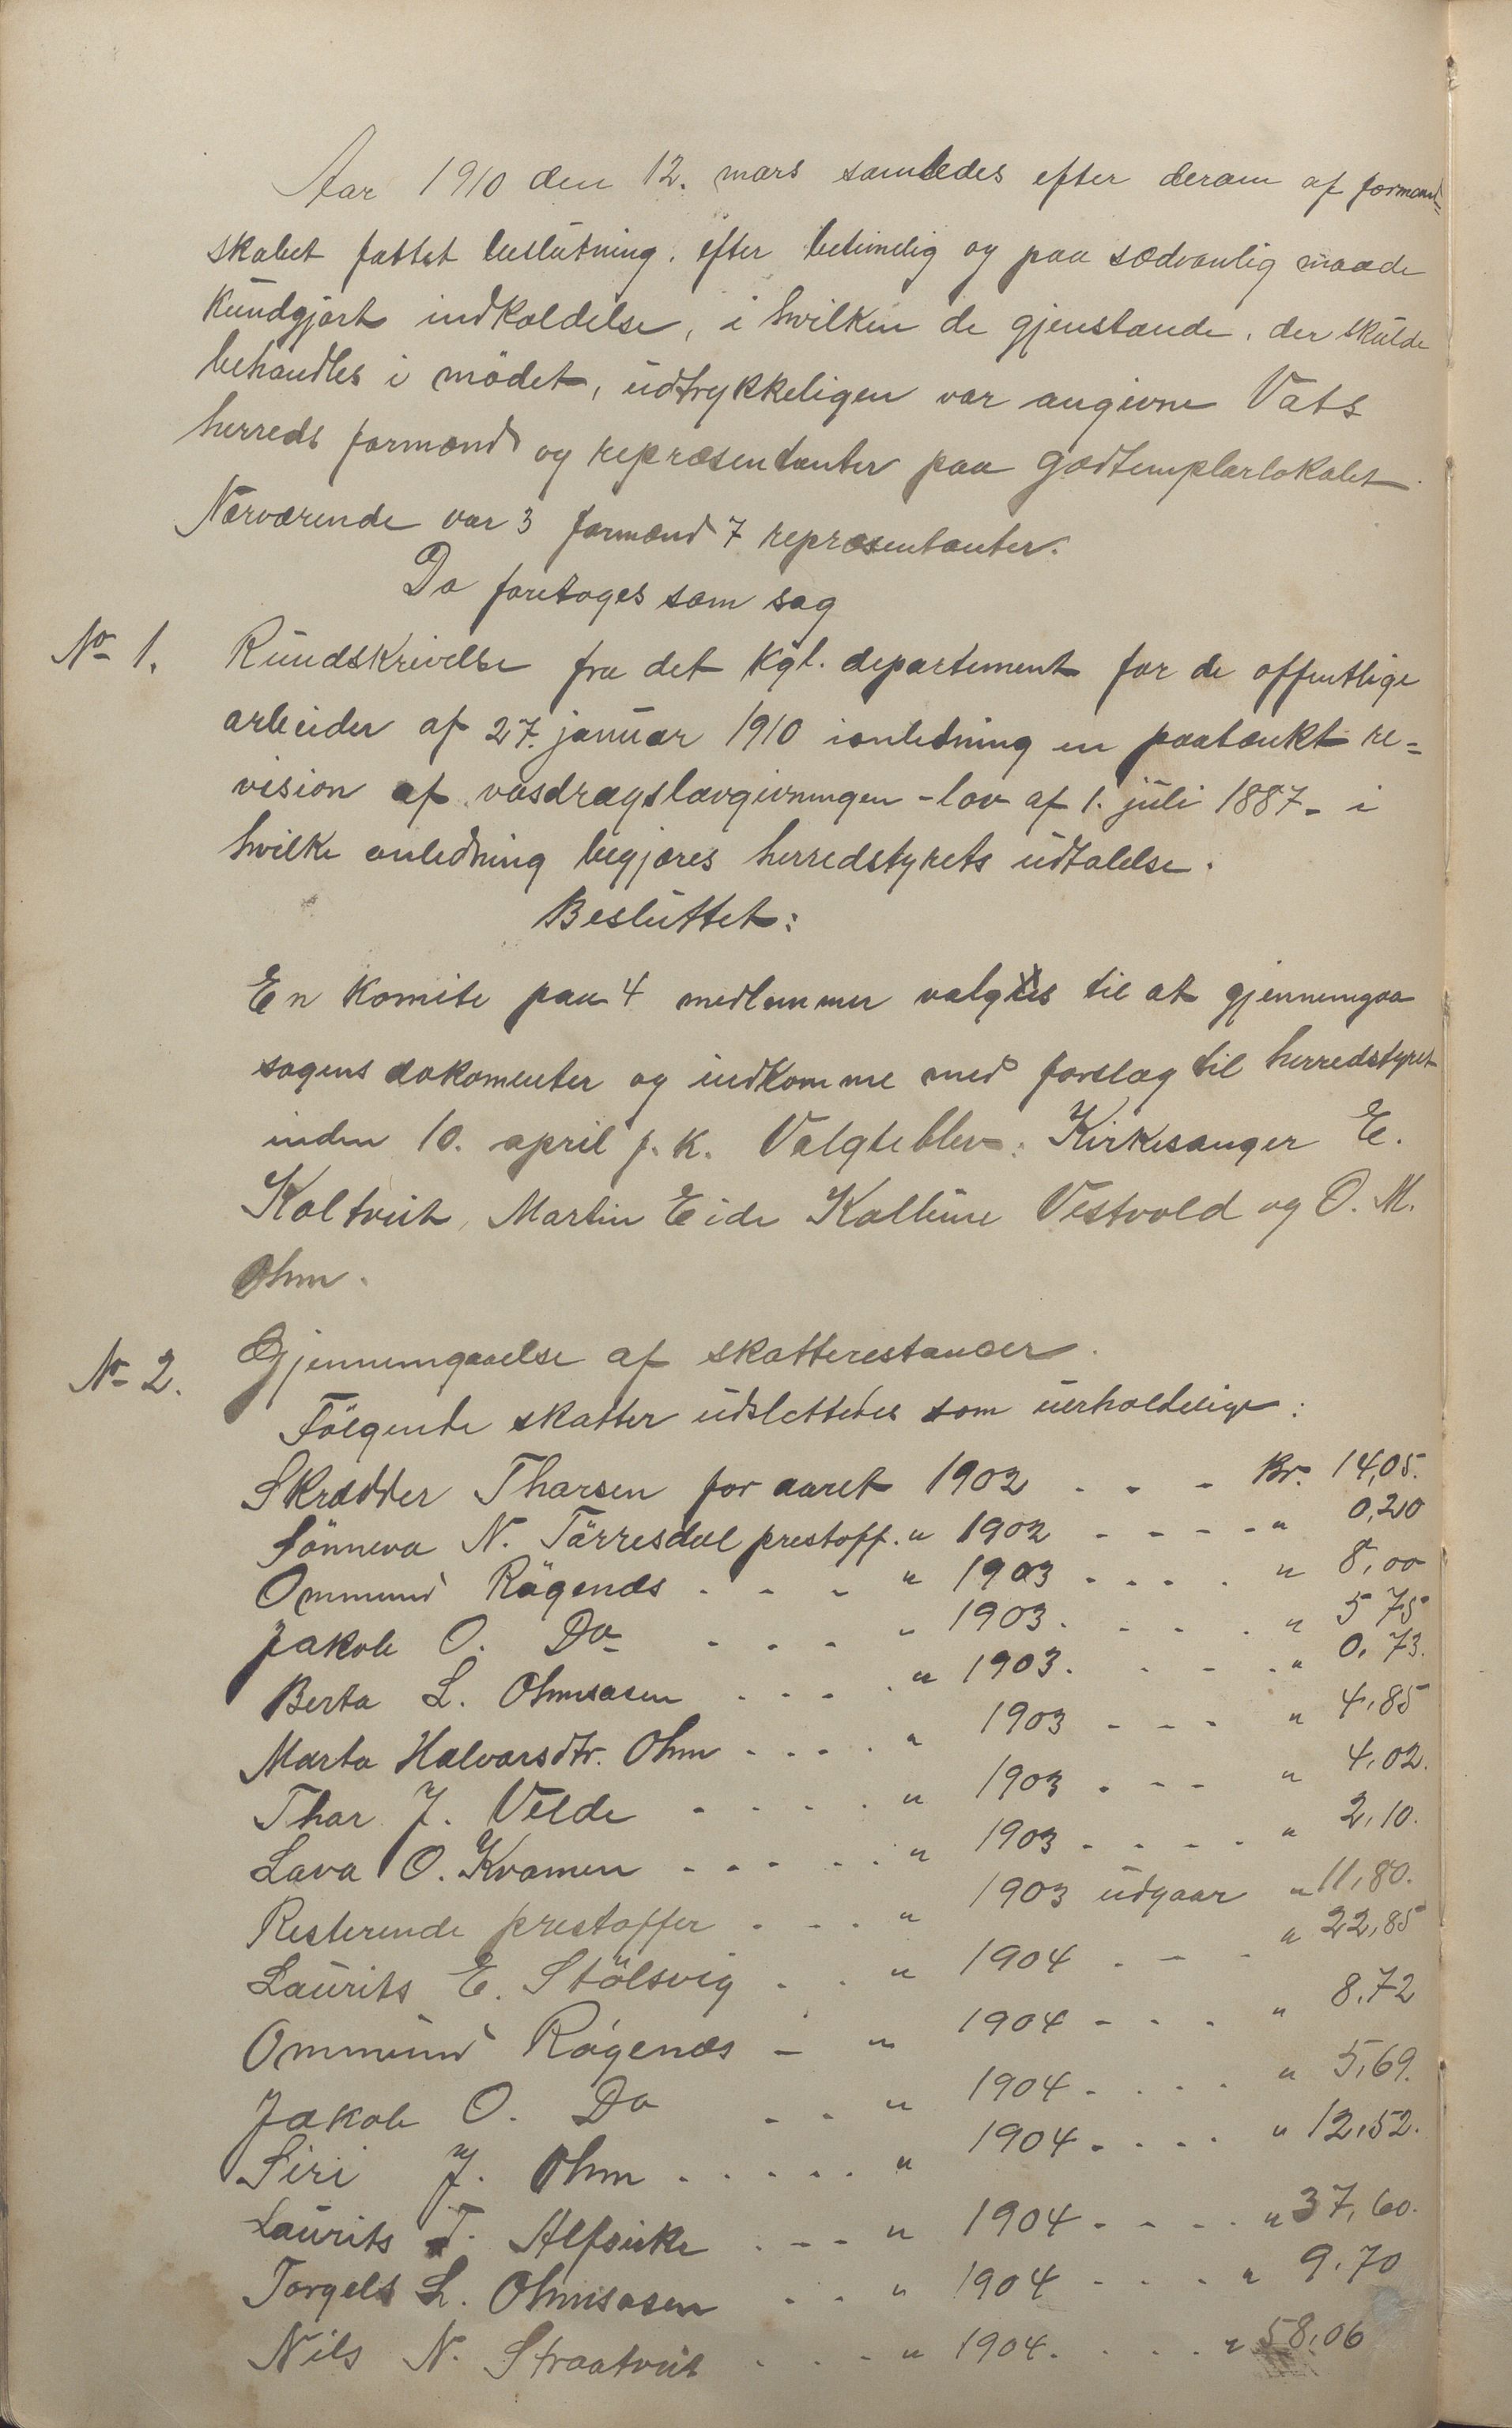 Aar 1910 den 12. mars samledes efter derom af formand=
skabet fattet beslutning, efter betimelig og paa sædvanlig maade
kundgjort indkaldelse, i hvilken de gjenstande, der skulde
behandles i mødet, udtrykkeligen var angivne Vats
herreds formænd og repræsentanter paa godtemplarlokalet.
Nærværende var 3 formænd 7 repræsentanter.
Da foretoges som sag
No 1. Rundskrivelse fra det kgl. departement for de offentlige
arbeider af 27. januar 1910 ianledning en paatænkt re=
vision af vasdragslovgivningen - lov af 1. juli 1887 - i
hvilke anledning begjæres herredstyrets udtalelse.
Besluttet:
En komite paa 4 medlemmer valgtes til at gjennemgaa
sagens dokomenter og indkomme med forslag til herredstyret
inden 10. april f. k. Valgte blev: Kirkesanger E.
Koltveit, Martin Eide Kolbein Vestvold og O. M.
Ohm.
No 2. Gjennemgaaelse af skatterestancer.
Følgende skatter udslettedes som uerholdelige:
Skrædder Tharsen for aaret 1902 . . . Kr. 14,05.
Sönneva N. Tørresdal prestoff. " 1902 - - - - " 0,20
Ommund Røgenæs . - - " 1903 - . . . " 8,00
Jakob O. Do - . . . " 1903. . - . . " 5 75
Berta L. Ohmsosen . . . . " 1903. . - . " 0. 73.
Marta Halvorsdtr. Ohm . . . . " 1903 - - - " 4,85
Thor J. Velde . . . . " 1903 . - - " 4,02.
Lava O. Kvamen . . . . . " 1903 - . . . " 2,10.
Resterende prestoffer . . . " 1903 udgaar " 11,80.
Laurits E. Stölsvig . . " 1904 . - . " 22,85
Ommund Røgenæs - " 1904 - . . " 8,72
Jakob O. Do . . " 1904 . . . . " 5,69.
Siri J. Ohm . . . . . " 1904 . . . . " 12,52.
Laurits T. Alfseike . - - " 1904 - - . . " 37,60.
Torgels L. Ohmsosen . . " 1904 - . . . " 9,70
Nils N. Straatveit . . . " 1904. . . . " 58,06